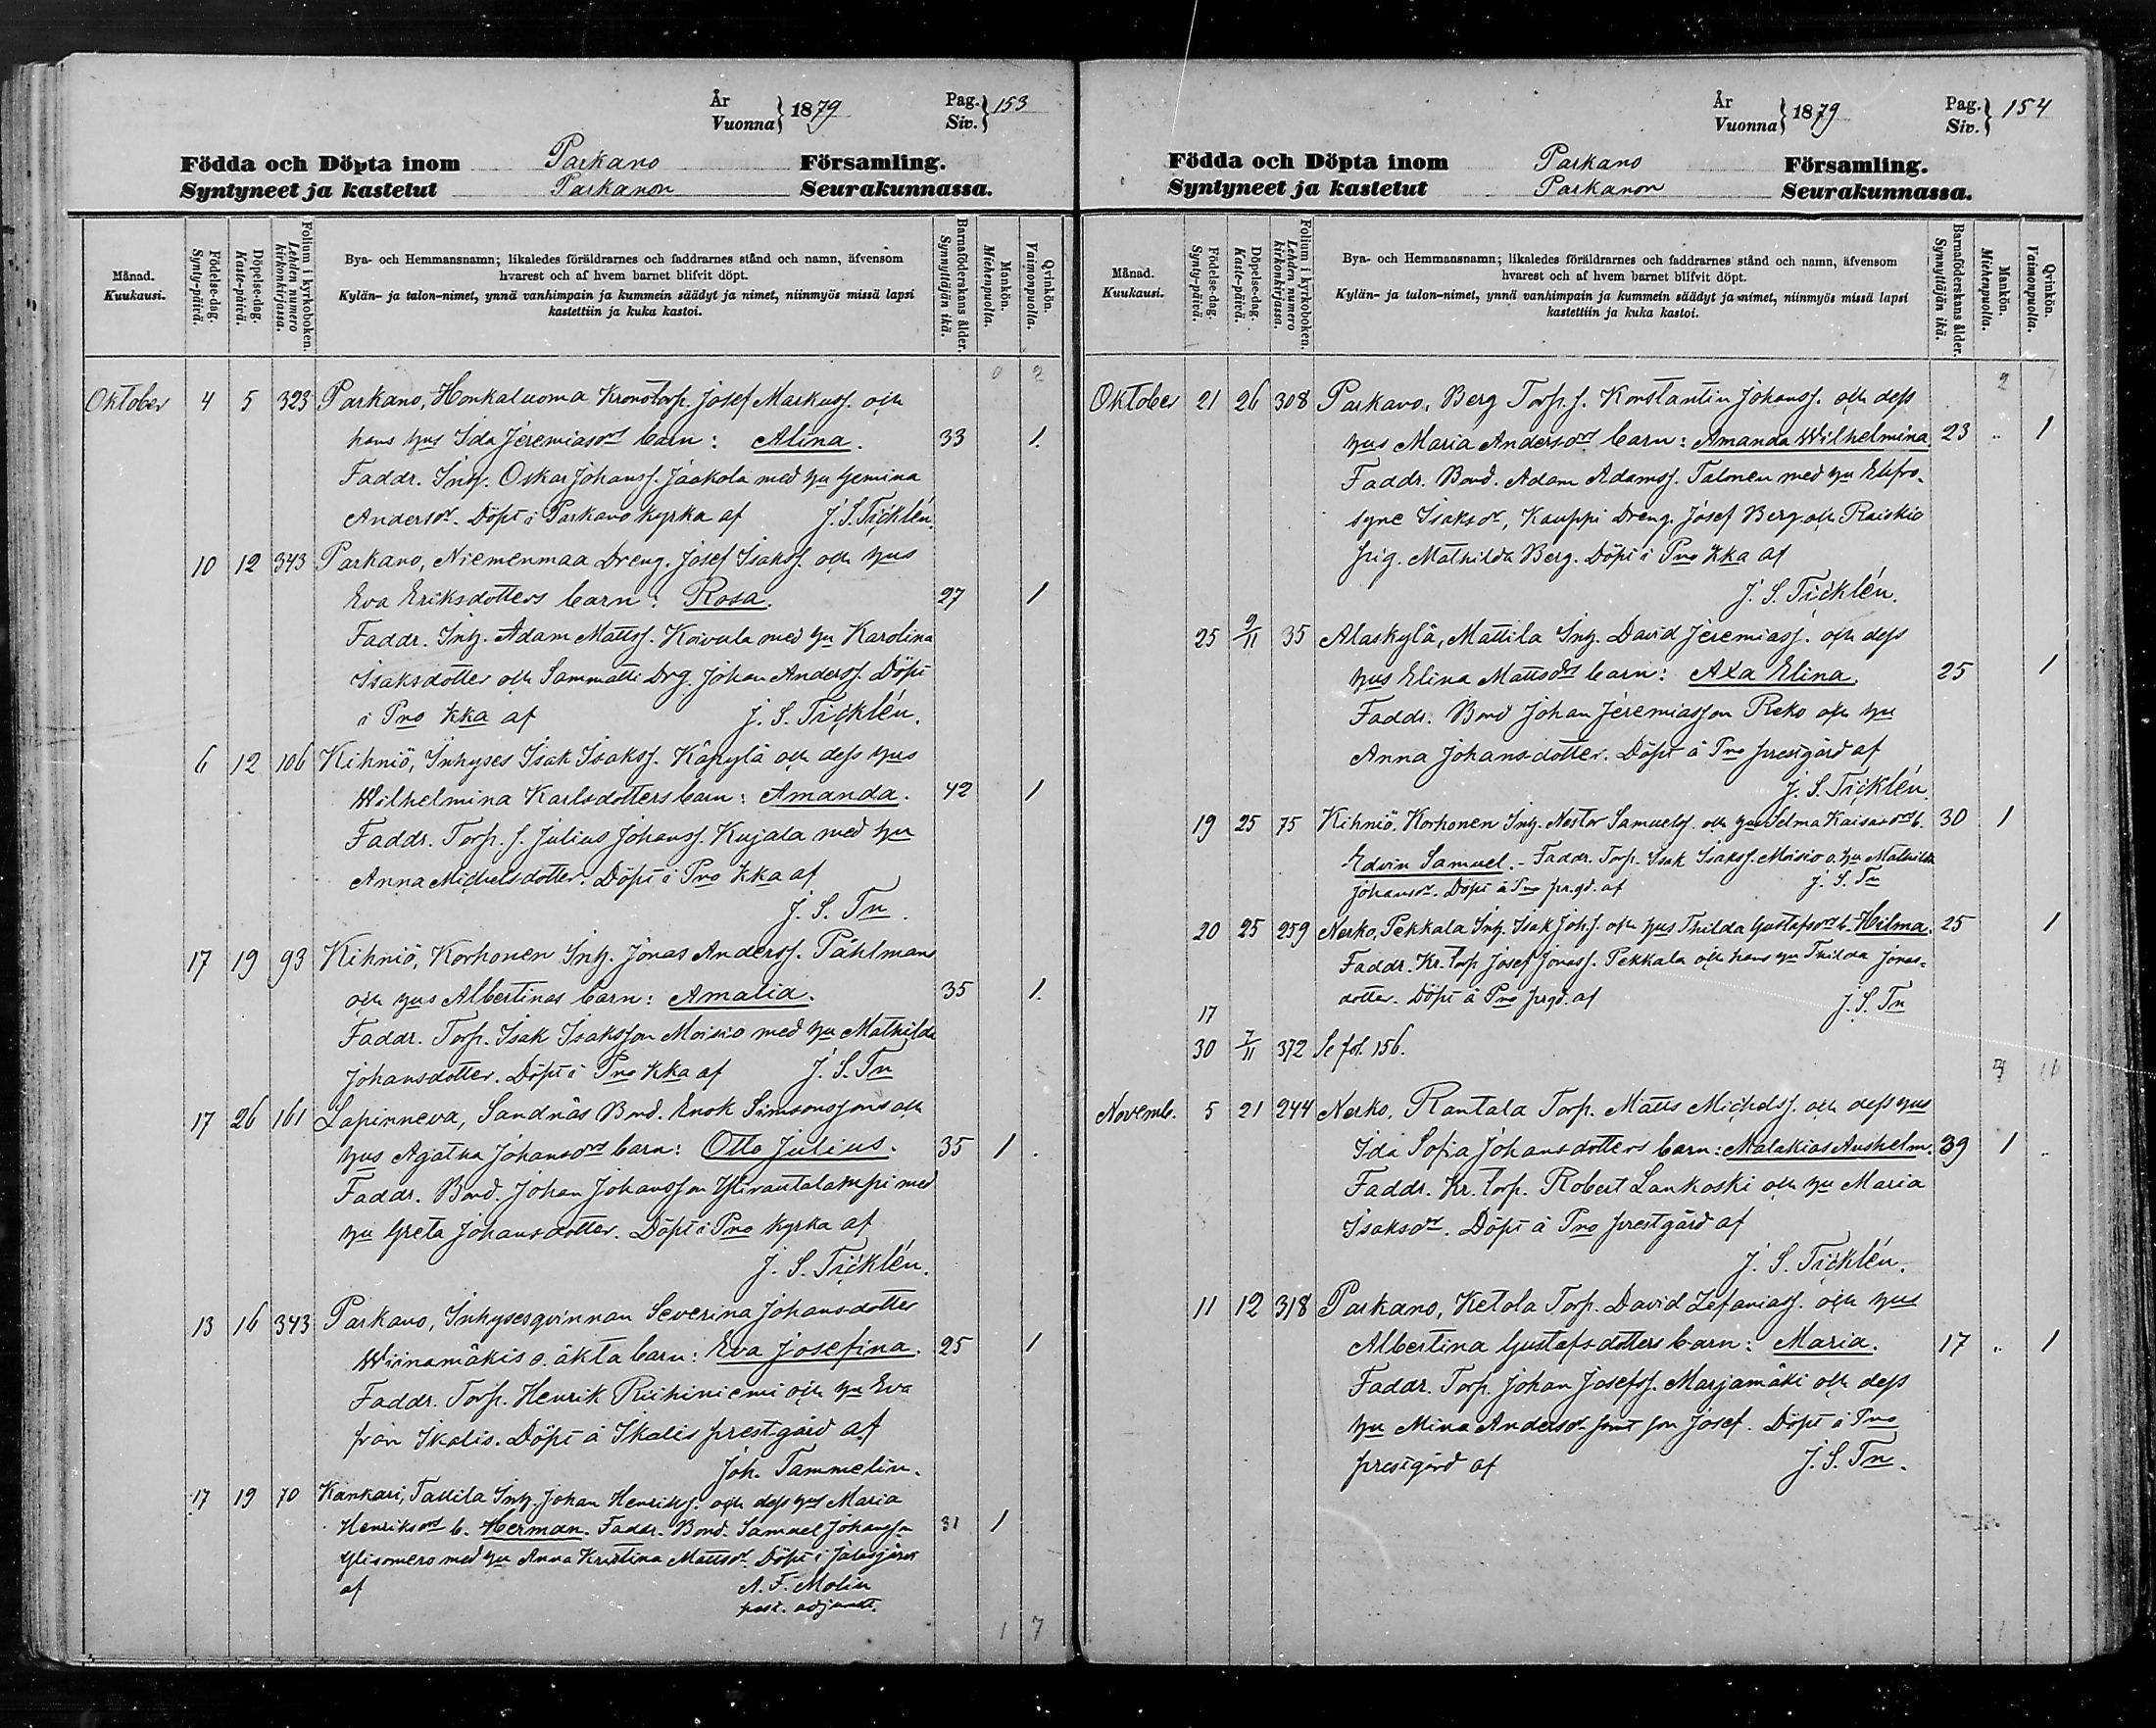 År
Vuonna } 1879
Pag.
Siv. } 153
Födda och Döpta inom Parkano Församling.
Syntyneet ja kastetut Parkanon Seurakunnassa.
Månad.
Kuukausi.
Födelse-dag.
Synty-päivä.
Döpelse-dag.
Kaste-päivä.
Folium i kyrkoboken.
Lehden numero kirkonkirjassa.
Bya- och Hemmansnamn; likaledes föräldrarnes och faddrarnes stånd och namn, äfvensom
hvarest och af hvem barnet blifvit döpt.
Kylän- ja talon-nimet, ynnä vanhimpain ja kummein säädyt ja nimet, niinmyös missä lapsi
kastettiin ja kuka kastoi.
Barnaföderskans ålder.
Synnyttäjän ikä.
Mankön.
Miehenpuolla.
Qvinkön.
Vaimonpuolla.
0 2
Oktober 4 5 323 Parkano, Honkaluoma Kronotorp. Josef Markuss. och
hans hus Ida Jeremiasdrs barn: Alina. 33 1.
Faddr. Inh. Oskar Johanss. Jaakola med hu Gemina
Andersdr. Döpt i Parkano kyrka af J. S. Ticklén.
10 12 343 Parkano, Niemenmaa Dreng. Josef Isakss. och hus
Eva Eriksdotters barn: Rosa. 27 1
Faddr. Inh. Adam Mattss. Koivula med hu Karolina
Isaksdotter och Sammatti Drg. Johan Anderss. Döpt
i Pno Kka af J. S. Ticklén.
6 12 106 Kihniö, Inhyses Isak Isakss. Käpylä och dess hus
Wilhelmina Karlsdotters barn: Amanda. 42 1
Faddr. Torp. s. Julius Johanss. Kujala med hu
Anna Michelsdotter. Döpt i Pno Kka af
J. S. Tn.
17 19 93 Kihniö, Korhonen Inh. Jonas Anderss. Påhlmans
och hus Albertinas barn: Amalia. 35 1.
Faddr. Torp. Isak Isaksson Moisio med hu Mathilda
Johansdotter. Döpt i Pno Kka af J. S. Tn
17 26 161 Lapinneva, Sandnäs Bond. Enok Simonssons och
hus Agatha Johansdrs barn: Otto Julius. 35 1
Faddr. Bond. Johan Johansson Ylirautalampi med
hu Greta Johansdotter. Döpt i Pno Kyrka af
J. S. Ticklén.
13 16 343 Parkano, Inhysesqvinnan Severina Johansdotter
Wiinamäkis o. äkta barn: Eva Josefina. 25 1
Faddr. Torp. Henrik Riihiniemi och hu Eva
från Ikalis. Döpt å Ikalis prestgård af
Joh. Tammelin.
17 19 70 Kankari, Tallila Inh. Johan Henrikss. och dess hus Maria
Henriksdrs b. Herman. Faddr. Bond. Samuel Johansson 31 1
Ylisomero med hu Anna Kristina Mattsdr. Döpt i Jalasjärvi
af A. F. Molin
past. adjunct.
1 7
År
Vuonna } 1879
Pag.
Siv. } 154
Födda och Döpta inom Parkano Församling.
Syntyneet ja kastetut Parkanon Seurakunnassa.
Månad.
Kuukausi.
Födelse-dag.
Synty-päivä.
Döpelse-dag.
Kaste-päivä.
Folium i kyrkoboken.
Lehden numero kirkonkirjassa.
Bya- och Hemmansnamn; likaledes föräldrarnes och faddrarnes stånd och namn, äfvensom
hvarest och af hvem barnet blifvit döpt.
Kylän- ja talon-nimet, ynnä vanhimpain ja kummein säädyt ja nimet, niinmyös missä lapsi
kastettiin ja kuka kastoi.
Barnaföderskans ålder.
Synnyttäjän ikä.
Mankön.
Miehenpuolla.
Qvinkön.
Vaimonpuolla.
2 7
Oktober 21 26 308 Parkano, Berg Torp. s. Konstantin Johanss. och dess
hus Maria Andersdrs barn: Amanda Wilhelmina 23 " 1
Faddr. Bond. Adam Adamss. Talonen med hu Eufro-
syne Isaksdr, Kauppi Dreng. Josef Berg och Raiskio
pig. Mathilda Berg. Döpt i Pno Kka af
J. S. Ticklén.
25 9/11 35 Alaskylä, Mattila Inh. David Jeremiass. och dess
hus Elina Mattsdrs barn: Axa Elina. 25 1
Faddr. Bond Johan Jeremiasson Reko och hu
Anna Johansdotter. Döpt å Pno prestgård af
J. S. Ticklén.
19 25 75 Kihniö. Korhonen Inh. Nestor Samuelss. och hus Selma Kaisasdrs b. 30 1
Edvin Samuel. - Faddr. Torp. Isak Isakss. Moisio o. hu Mathilda
Johansdr. Döpt å Pno pr.gd. af J. S. Tn
20 25 259 Nerko, Pekkala Inh. Isak Joh.s. och hus Thilda Gustafsdrs b. Hilma. 25 1
Faddr. Kr. torp. Josef Jonass. Pekkala och hans hu Thilda Jonas-
dotter. Döpt å Pno prgd. af J. S. Tn
17
30 7/11 372 Se fol. 156.
Novemb. 5 21 244 Nerko, Rantala Torp. Matts Michelss. och dess hus
Ida Sofia Johansdotters barn: Malakias Anshelm. 39 1
Faddr. Kr. torp. Robert Lankoski och hu Maria
Isaksdr. Döpt å Pno prestgård af
J. S. Ticklén.
11 12 318 Parkano, Ketola Torp. David Zefaniass. och hus
Albertina Gustafsdotters barn: Maria. 17 " 1
Faddr. Torp. Johan Josefss. Marjamäki och dess
hu Mina Andersdr samt son Josef. Döpt å Pno
prestgård af J. S. Tn.